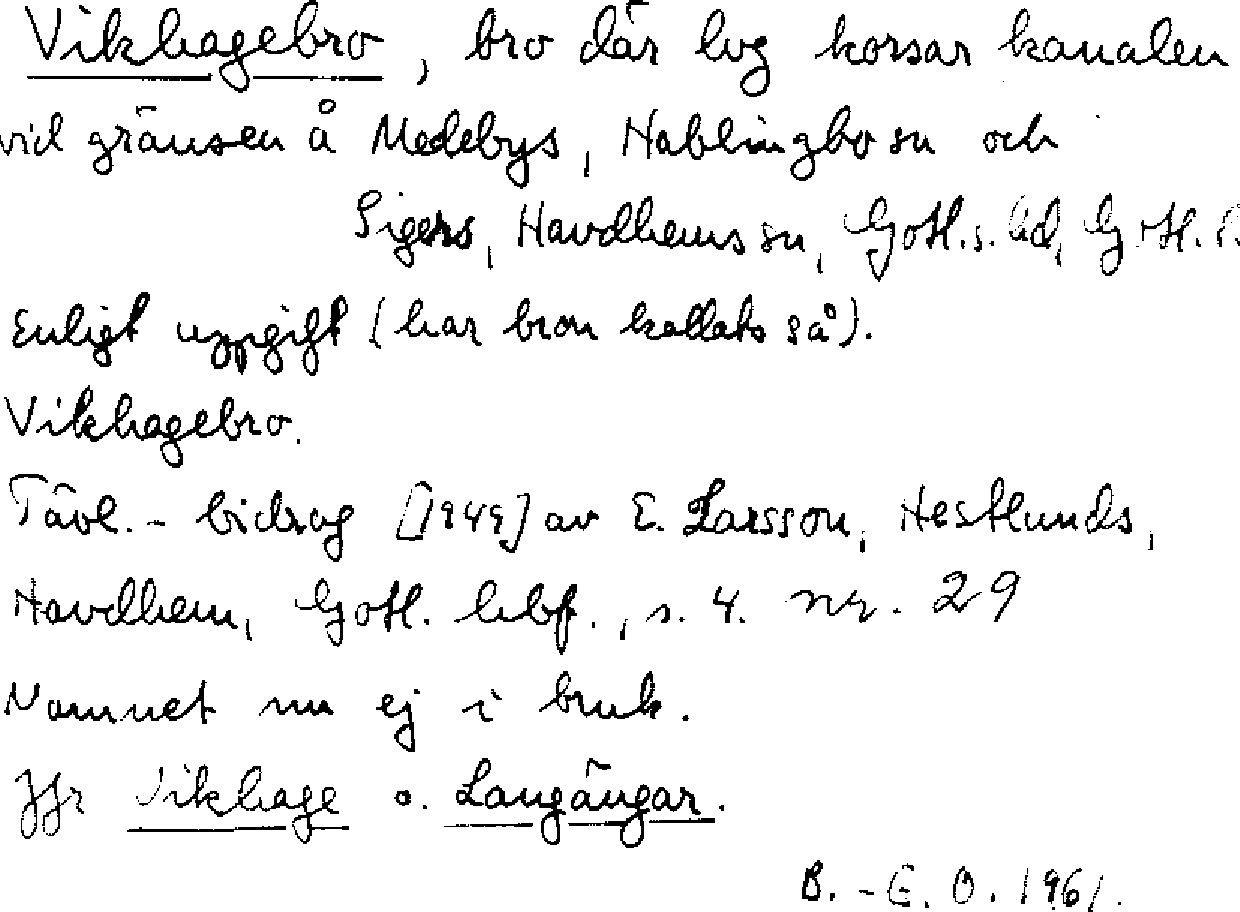 Vikhagebro, bro där lvg korsar kanalen
vid gränsen å Medebys, Hablingbo sn och
Sigers, Havdhems sn, Gotl. s. hd, Gotl. l.
Enligt uppgift (har bron kallats så).
Vikhagebro.
Tävl.-bidrag [1949] av E. Larsson, Hestlunds,
Havdhem, Gotl. hbf., s. 4. nr. 29
Namnet nu ej i bruk.
Jfr Vikhage o. Langängar.
B.-E. O. 1961.